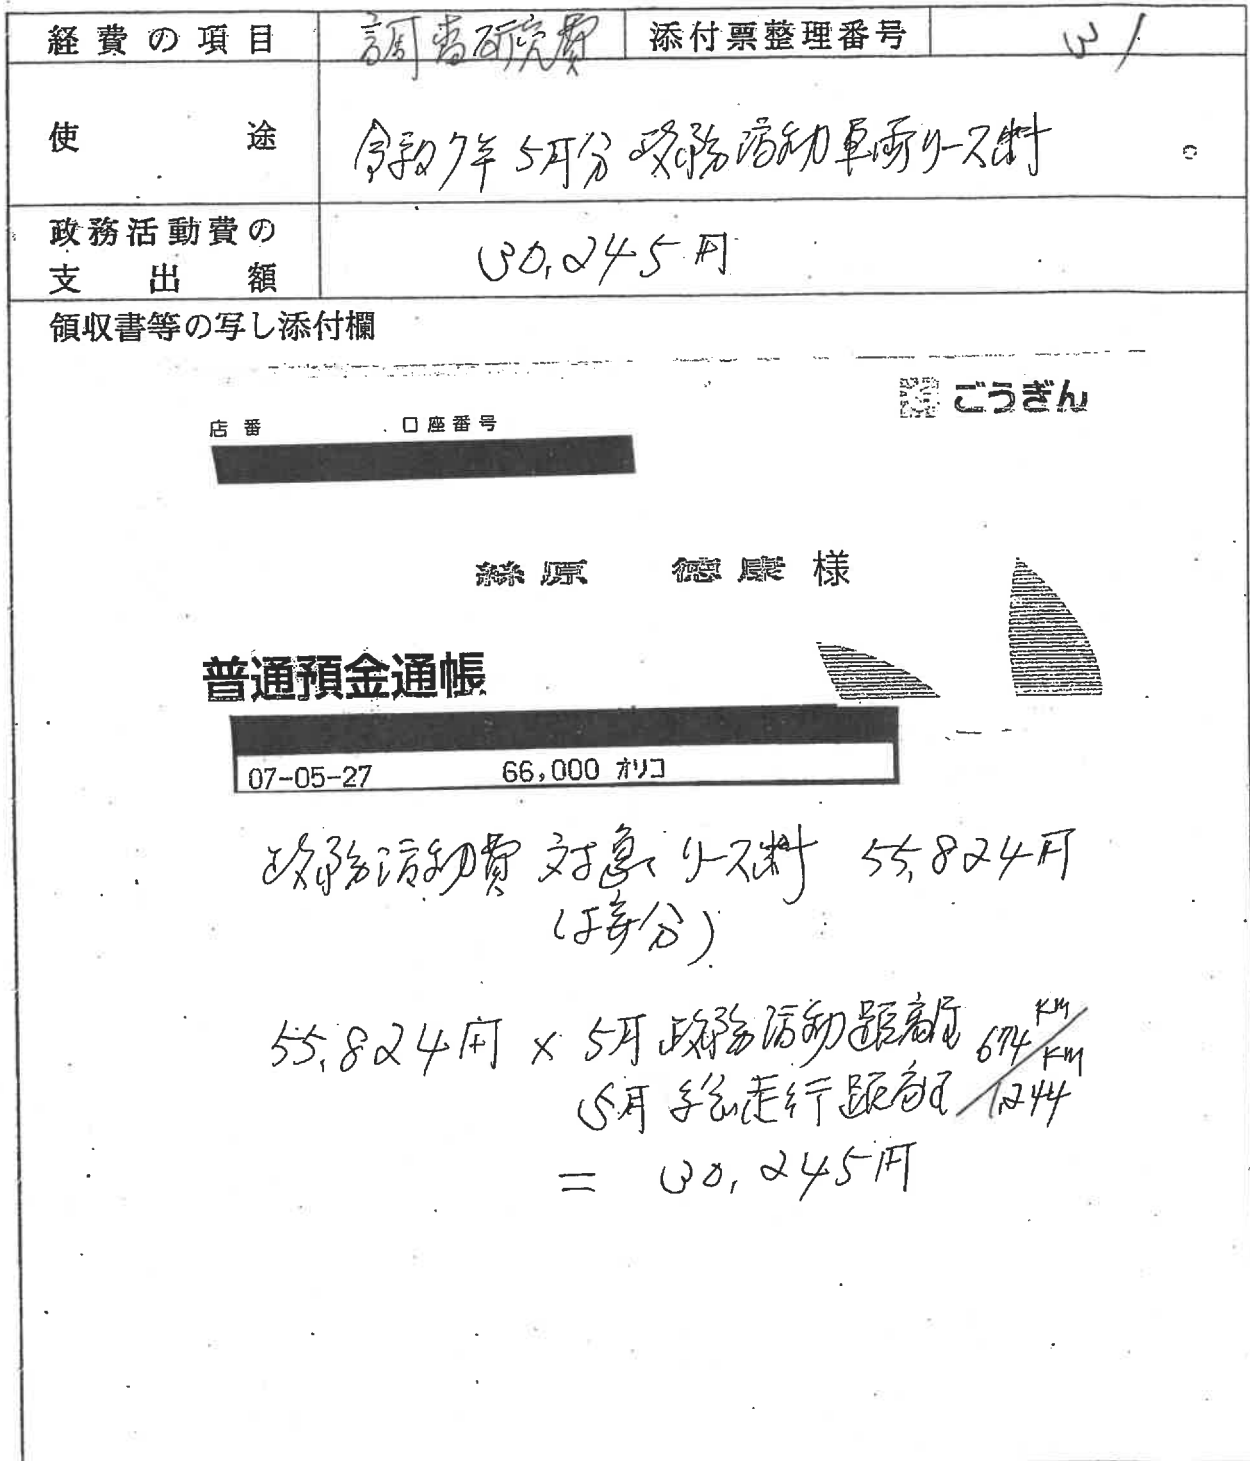 経費の項目 調査研究費 添付票整理番号 31
使途 令和7年5月分 政務活動車両リース料
政務活動費の
支出額 30,245円
領収書等の写し添付欄
ごうぎん
店番 口座番号
絲原 徳康 様
普通預金通帳
07-05-27 66,000 オリコ
政務活動費 対象 リース料 55,824円
(按分)
55,824円 × 5月政務活動距離 674km
5月総走行距離 1,244km
= 30,245円